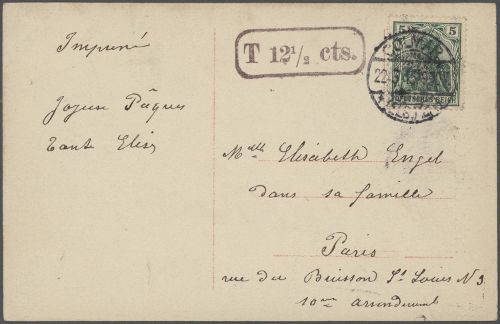 Imprimé
T 12½ cts.
5 5
COLMAR
DEUTSCHES REICH
Joyeuse Pâques
Tante Elise
Mlle Elisabeth Engel
dans sa famille
Paris
rue du Buisson St Louis N 3
10me arrondissement